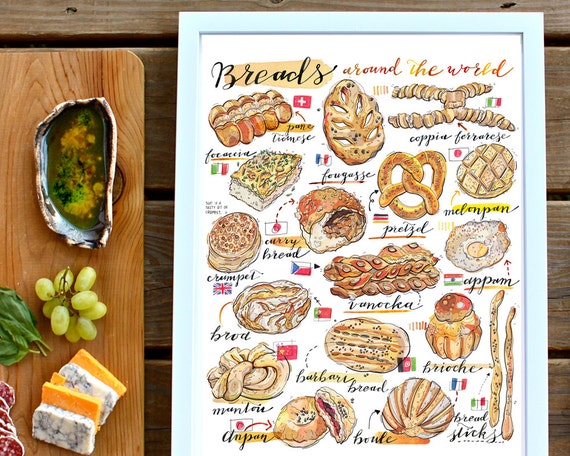 Breads around the world
pane
ticinese
coppia ferrarese
focaccia
fougasse
pretzel
melonpan
curry
bread
crumpet
vanocka
appam
broa
brioche
barbari
bread
mantou
anpan
boule
bread
sticks